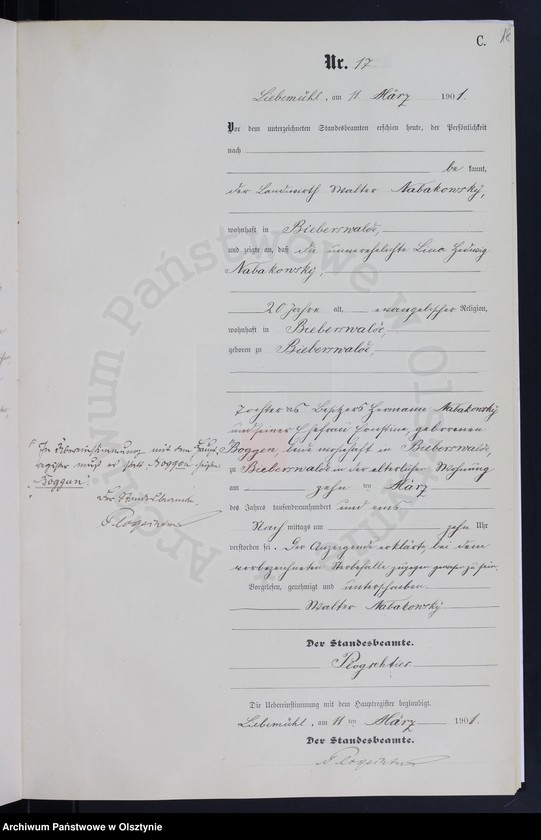 C.
18
Nr. 17
Liebemühl, am 11 März 1901.
Vor dem unterzeichneten Standesbeamten erschien heute, der Persönlichkeit
nach
be kannt,
der Landwirth Walter Nabakowsky,
wohnhaft in Bieberswalde,
und zeigte an, daß die unverehelichte Lina Hedwig
Nabakowsky,
20 Jahre alt, evangelischer Religion,
wohnhaft in Bieberswalde,
geboren zu Bieberswalde,
Tochter des Besitzers Hermann Nabakowsky
und seiner Ehefrau, geborenen
Boggen, beide wohnhaft in Bieberswalde,
zu Bieberswalde in der elterlichen Wohnung
am zehn ten März
des Jahres tausend neunhundert und eins
Nach mittags um zehn Uhr
verstorben sei. Der Anzeigende erklärte, bei dem
vorbezeichneten Sterbefalle zugegen gewesen zu sein.
Vorgelesen, genehmigt und unterschrieben.
Walter Nabakowsky
Der Standesbeamte.
In Übereinstimmung mit dem Haupt-
register muß es statt Boggen heißen
Boggun.
Der Standesbeamte.
Die Uebereinstimmung mit dem Hauptregister beglaubigt.
Liebemühl, am 11 ten März 1901.
Der Standesbeamte.
Archiwum Państwowe w Olsztynie
Archiwum Państwowe w Olsztynie